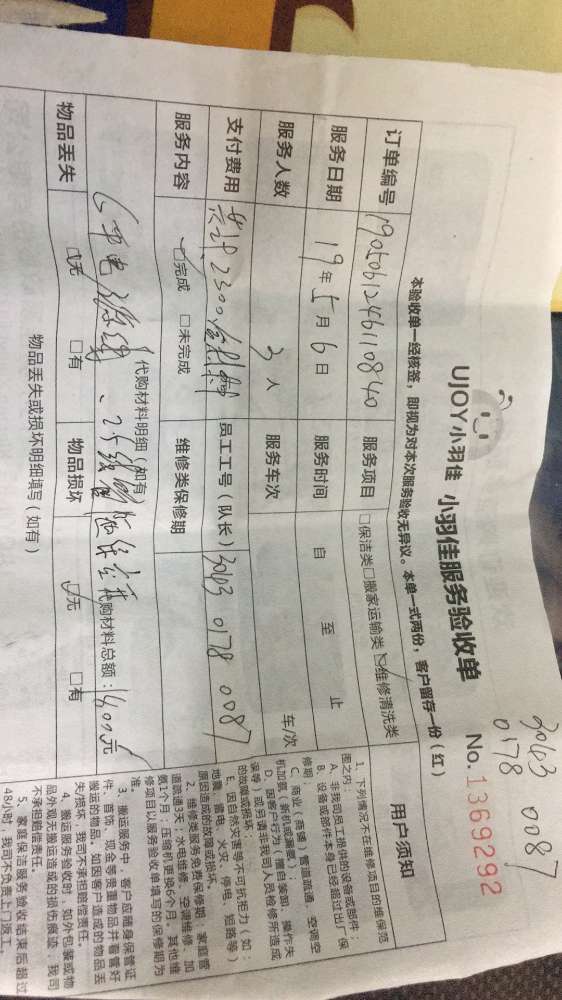 3043 0087
0178
UJOY小羽佳 小羽佳服务验收单 No.1369292
本验收单一经核签,即视为对本次服务验收无异议。本单一式两份,客户留存一份(红)
订单编号 1905061246110840 服务项目 □保洁类□搬家运输类☑维修清洗类
服务日期 19年5月6日 服务时间 自 至 止
服务人数 3人 服务车次 车/次
支付费用 共计2300 员工工号(队长) 3043 0178 0087
服务内容 ☑完成 □未完成 维修类保修期
代购材料明细(如有)
代购材料总额:1400元
物品丢失 ☑无 □有 物品损坏 ☑无 □有
物品丢失或损坏明细填写(如有)
用户须知
1、下列情况不在维修项目的维保范
围之内:
A、非我司员工提供的设备或部件;
B、设备或部件本身已经超过出厂保
修期;
C、商业(商铺)管道疏通、空调空
机加氨(新机或漏氨);
D、因客户行为(擅自装卸、操作失
误等)或另请非我司人员检修所造成
的故障或损坏;
E、因自然灾害等不可抗拒力(如:
地震、雷电、火灾、停电、短路等)
原因造成的故障或损坏。
2、维修类服务免费保修期:家庭管
道疏通3天;水电维修、空调维修、加
氨1个月;压缩机更换6个月。其他维
修项目以服务验收单填写的保修期为
准。
3、搬运服务中,客户应随身保管证
件、首饰、现金等贵重物品并看管好
搬运的物品。如因客户造成的物品丢
失/损坏,我司不承担赔偿责任。
4、搬运服务验收时,如外包装或物
品外观无搬运造成的损伤痕迹,我司
不承担赔偿责任。
5、家庭保洁服务验收结束后超过
48小时,我司不负责上门返工。